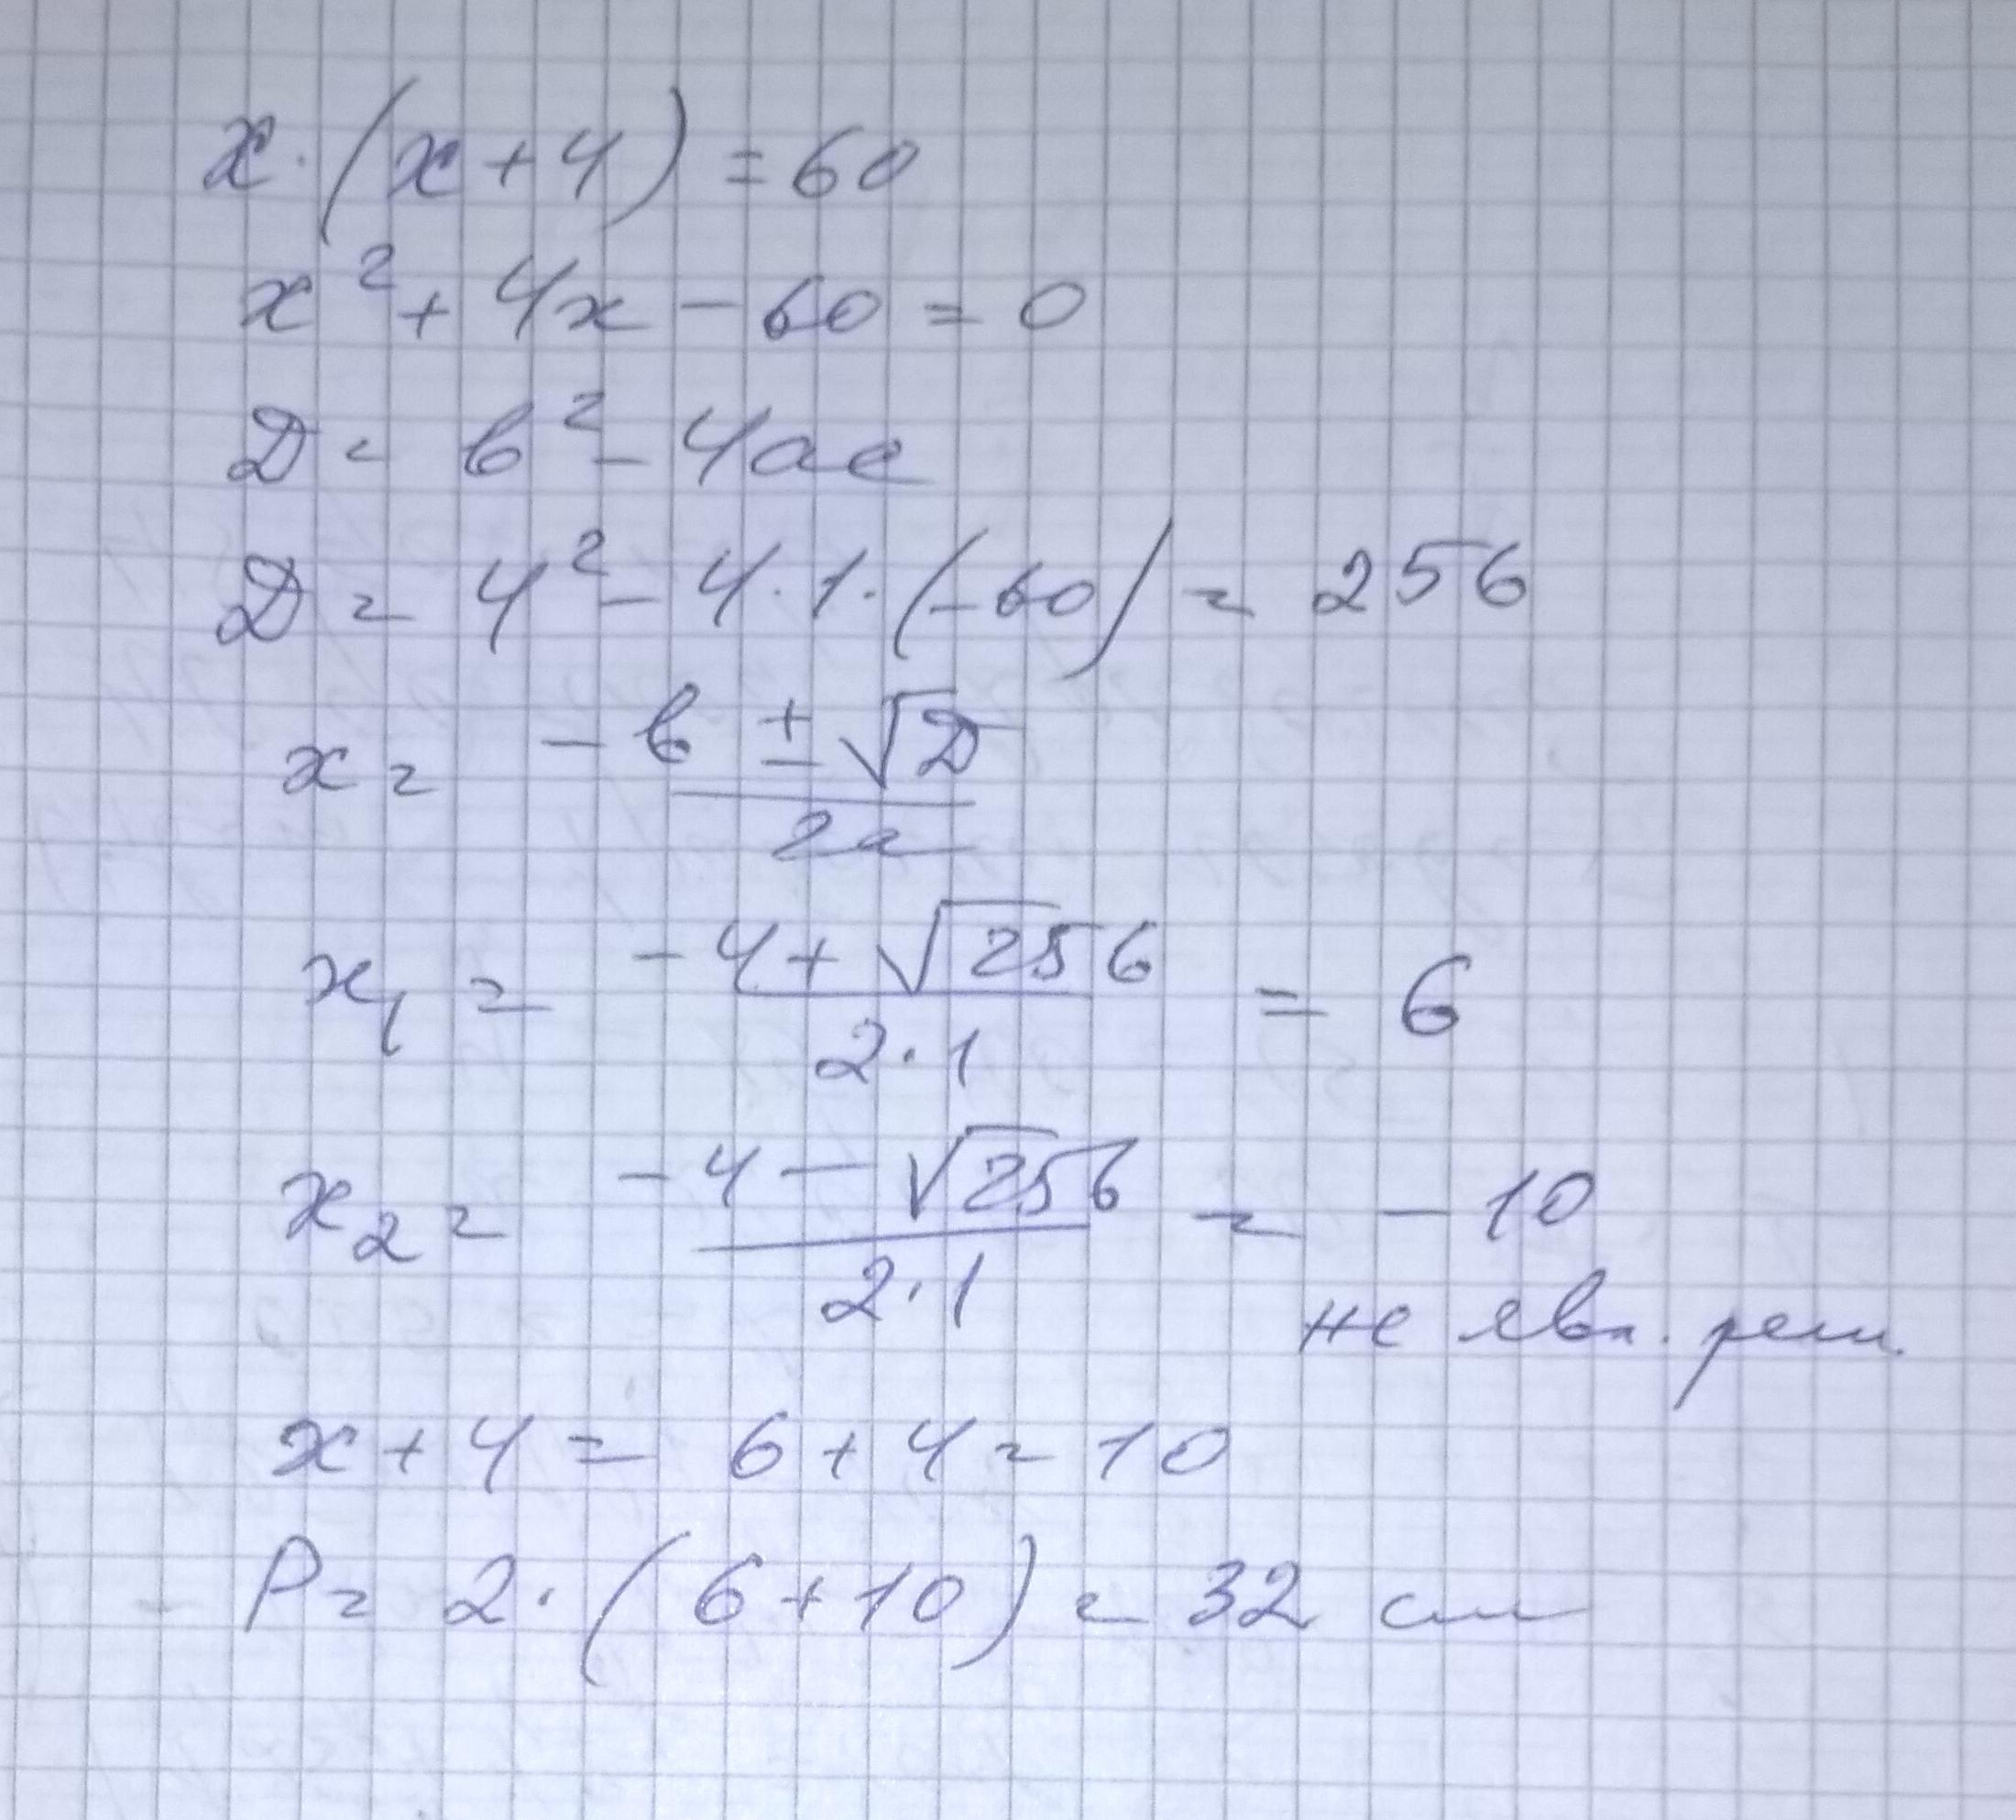 x · (x + 4) = 60
x² + 4x - 60 = 0
D = b² - 4ac
D = 4² - 4 · 1 · (-60) = 256
x = (-b ± √D) / 2a
x₁ = (-4 + √256) / 2 · 1 = 6
x₂ = (-4 - √256) / 2 · 1 = -10
не явл. реш.
x + 4 = 6 + 4 = 10
P = 2 · (6 + 10) = 32 см